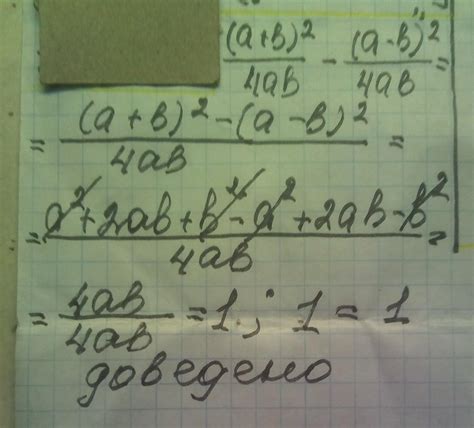 (a+b)²/4ab - (a-b)²/4ab =
= (a+b)²-(a-b)²/4ab =
= a²+2ab+b²-a²+2ab-b²/4ab =
= 4ab/4ab = 1; 1 = 1
доведено